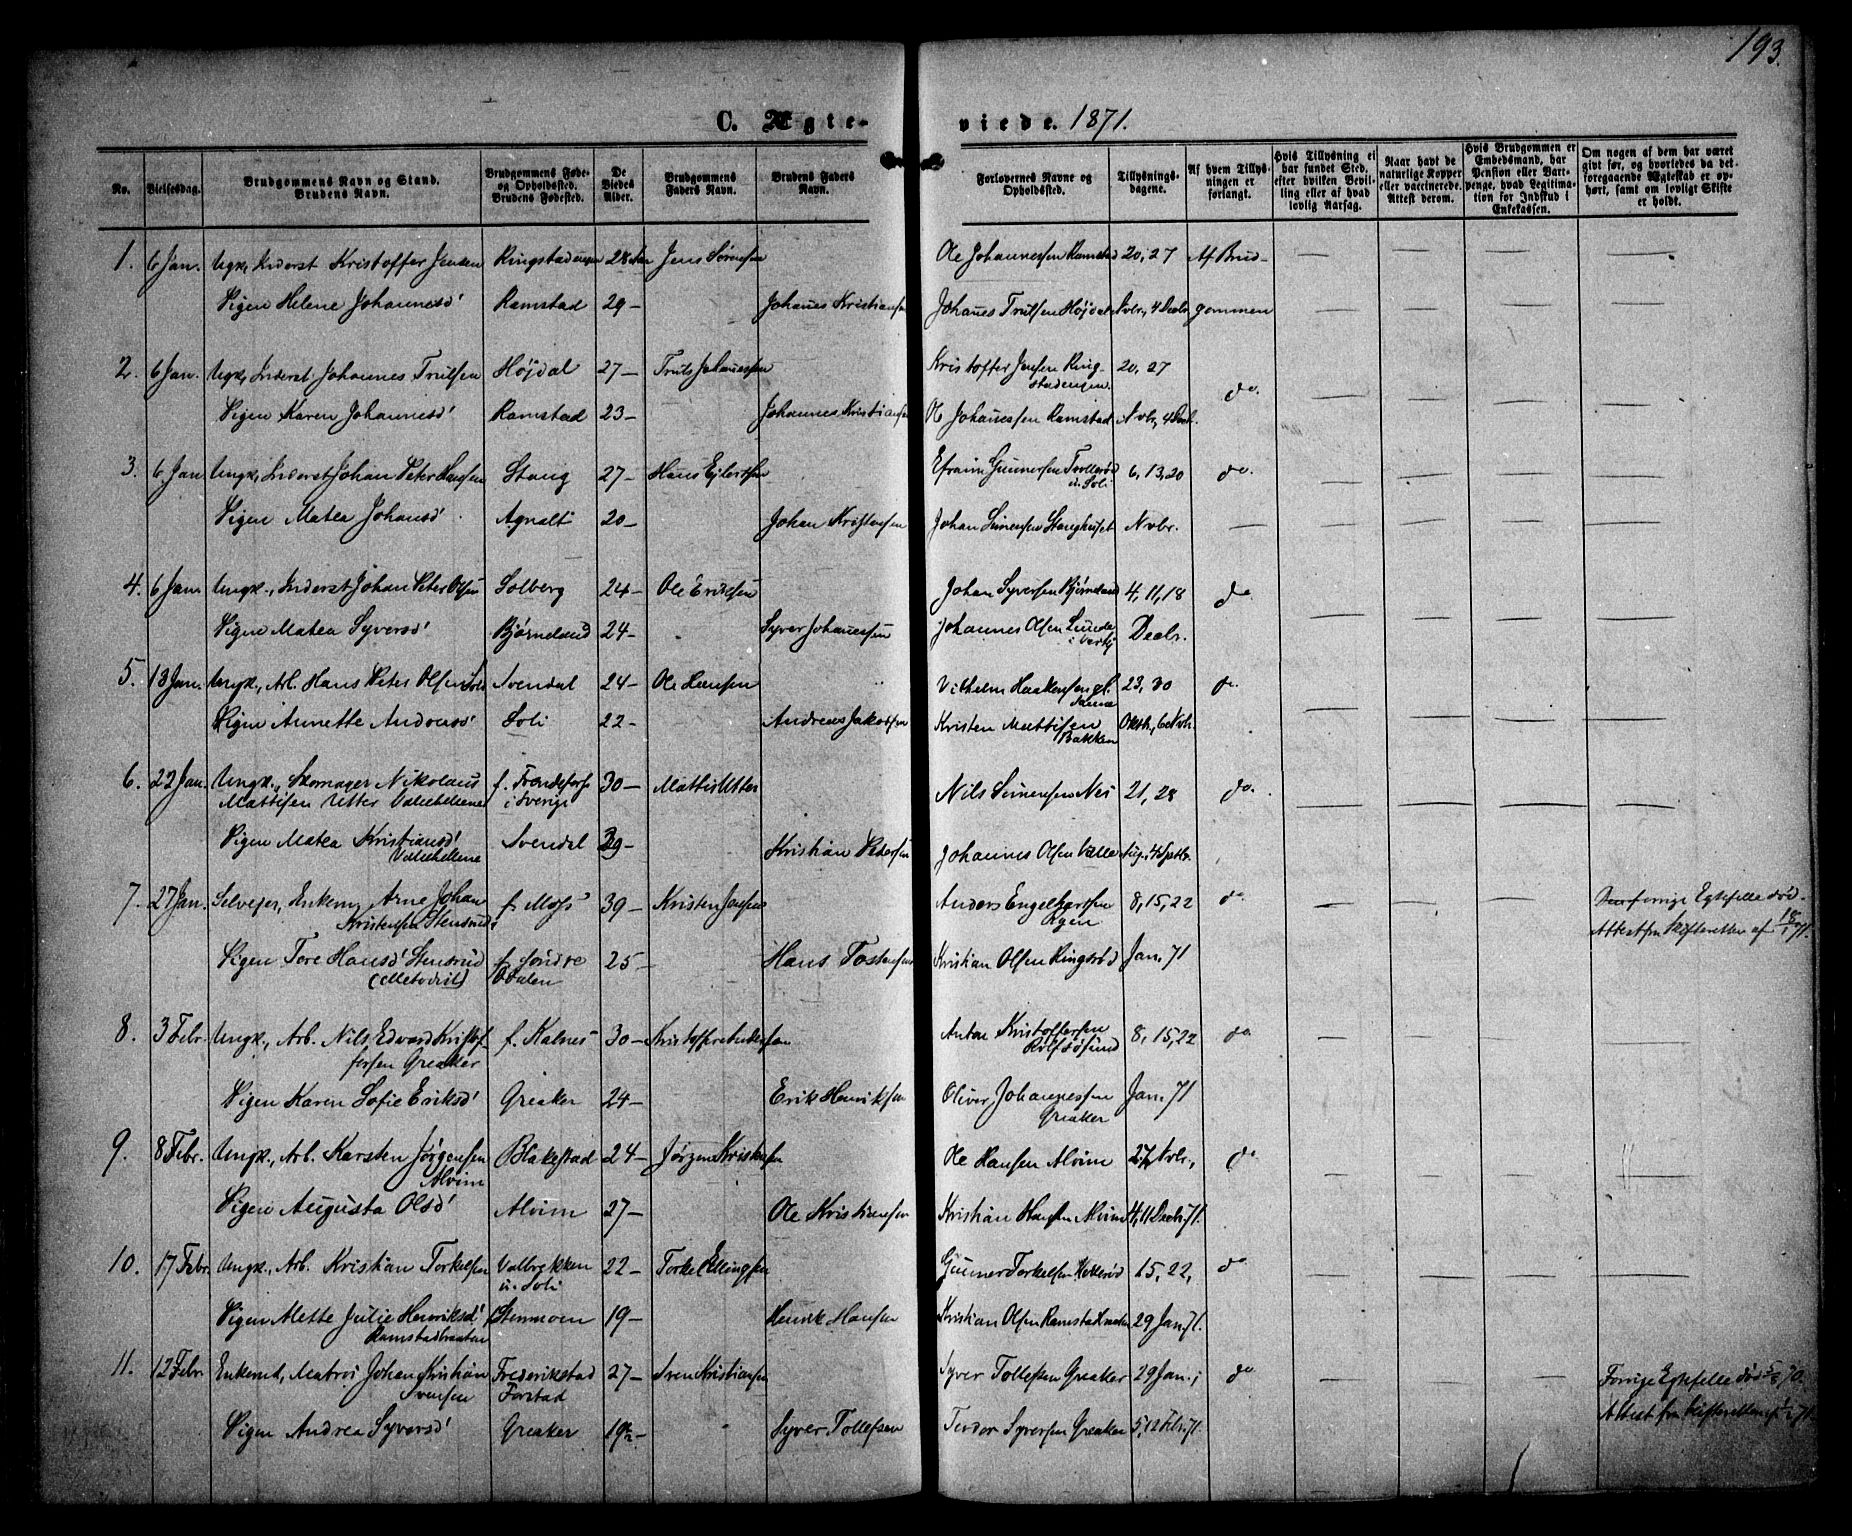 193.
C. Ægte-viede. 1871.
No.
Vielsesdag.
Brudgommens Navn og Stand.
Brudens Navn.
Brudgommens Føde- og Opholdssted.
Brudens Fødested.
De Viedes Alder.
Brudgommens Faders Navn.
Brudens Faders Navn.
Forlovernes Navne og Opholdssted.
Tillysnings-dagene.
Af hvem Tillys-ningen er forlangt.
Hvis Tillysning ei har fundet Sted, efter hvilken Bevil-ling eller af hvad lovlig Aarsag.
Naar havt de naturlige Kopper eller vaccinerede. Attest derom.
Hvis Brudgommen er Embedsmand, har Pension eller Vart-penge, hvad Legitima-tion for Indskud i Enkekassen.
Om nogen af dem har været gift før, og hvorledes da det foregaaende Ægteskab er op-hørt, samt om lovligt Skifte er holdt.
1. 6 Jan. Ungk., Inderst Kristoffer Jensen Ringstadengen 28 Jens Sørensen Ole Johannessen Ramstad 20, 27 Af Brud-
Pigen Helene Johannesd' Ramstad 29 – Johanes Kristiansen Johanes Trulsen Højdal Nvbr, 4 Decbr gommen
2. 6 Jan. Ungk, Inderst Johannes Trulsen Højdal 27 – Truls Johanessen Kristoffer Jensen Ring-stadengen 20, 27 do.
Pigen Karen Johannesd' Ramstad 23 – Johannes Kristiansen Ole Johanessen Ramstad Nvbr, 4 Decb.
3. 6 Jan Ungk, Inderst Johan Peter Hansen Stang 27 – Hans Ejlertsen Efraim Gunnersen Trollerød u. Soli 6, 13, 20 do.
Pigen Matea Johansd' Agnalt 20 – Johan Kristensen Johan Simensen Stanghuset Nvbr.
4. 6 Jan Ungk., Inderst Johan Peter Olsen Solberg 24 – Ole Eriksen Johan Syversen Bjørneland 4, 11, 18 do.
Pigen Matea Syversd' Bjørneland 24 – Syver Johanessen Johannes Olsen Lunde Decbr.
5. 13 Jan. Ungk., Arb. Hans Peter Olsen Soli Svendal 24 – Ole Hansen Vilhelm Haakensen 23, 30 do.
Pigen Annette Andreasd' Soli 22 – Andreas Jakobsen Kristen Mattisen Bakken Oktb, 6 Nvbr.
6. 22 Jan. Ungk., Skomager Nikolaus f. 30 – Mattis Utter Nils Simensen Nes 21, 28 do.
Mattisen Utter Valebekkene i Sverige
Pigen Matea Kristiansd' Valebekkene Svendal 39 – Kristian Pedersen Johannes Olsen Valle Aug, 4 Septb.
7. 27 Jan. Selvejer, Enkem, Arne Johan f. Moss 39 – Kristen Jensen Anders Engelbertsen 8, 15, 22 do Forrige Egtefelle død.
Kristensen Stensrud Attest fra Skifteretten af 18/1 71.
Pigen Tore Hansd' Stensrud (Metodist) f. Søndre Odalen 25 – Hans Tostensen Kristian Olsen Ringsrød Jan. 71
8. 3 Febr. Ungk., Arb. Nils Edvard Kristof-fersen Greaker f. Kalnes 30 – Kristoffer Andersen Anton Kristoffersen Rolfsøsund 8, 15, 22 do
Pigen Karen Sofie Eriksd' Greaker 24 – Erik Henriksen Oliver Johannessen Greaker Jan. 71
9. 8 Febr. Ungk., Arb. Karsten Jørgensen Alvim Blakestad 24 – Jørgen Kristensen Ole Hansen Alvim 27 Nvbr., do
Pigen Augusta Olsd' Alvim 27 – Ole Kristiansen Kristian Hansen Alvim 4, 11 Decb. 71.
10. 17 Febr. Ungk., Arb. Kristian Torkelsen Valbrekken u. Soli 22 – Torkel Ellingsen Gunner Torkelsen 15, 22, do
Pigen Mette Julie Henriksd' Ramstadbraaten Stenmoen 19 – Henrik Hansen Kristian Olsen 29 Jan. 71.
11. 12 Febr. Enkemd, Matros Johan Kristian Svensen Frederikstad Forstad 27 – Sven Kristiansen Syver Tollefsen Greaker 29 Jan., do Forrige Egtefelle død 5/8 70.
Pigen Andrea Syversd' Greaker 19½ – Syver Tollefsen Teodor Syversen Greaker 5, 12 Febr. 71. Attest fra Skifteretten 71.